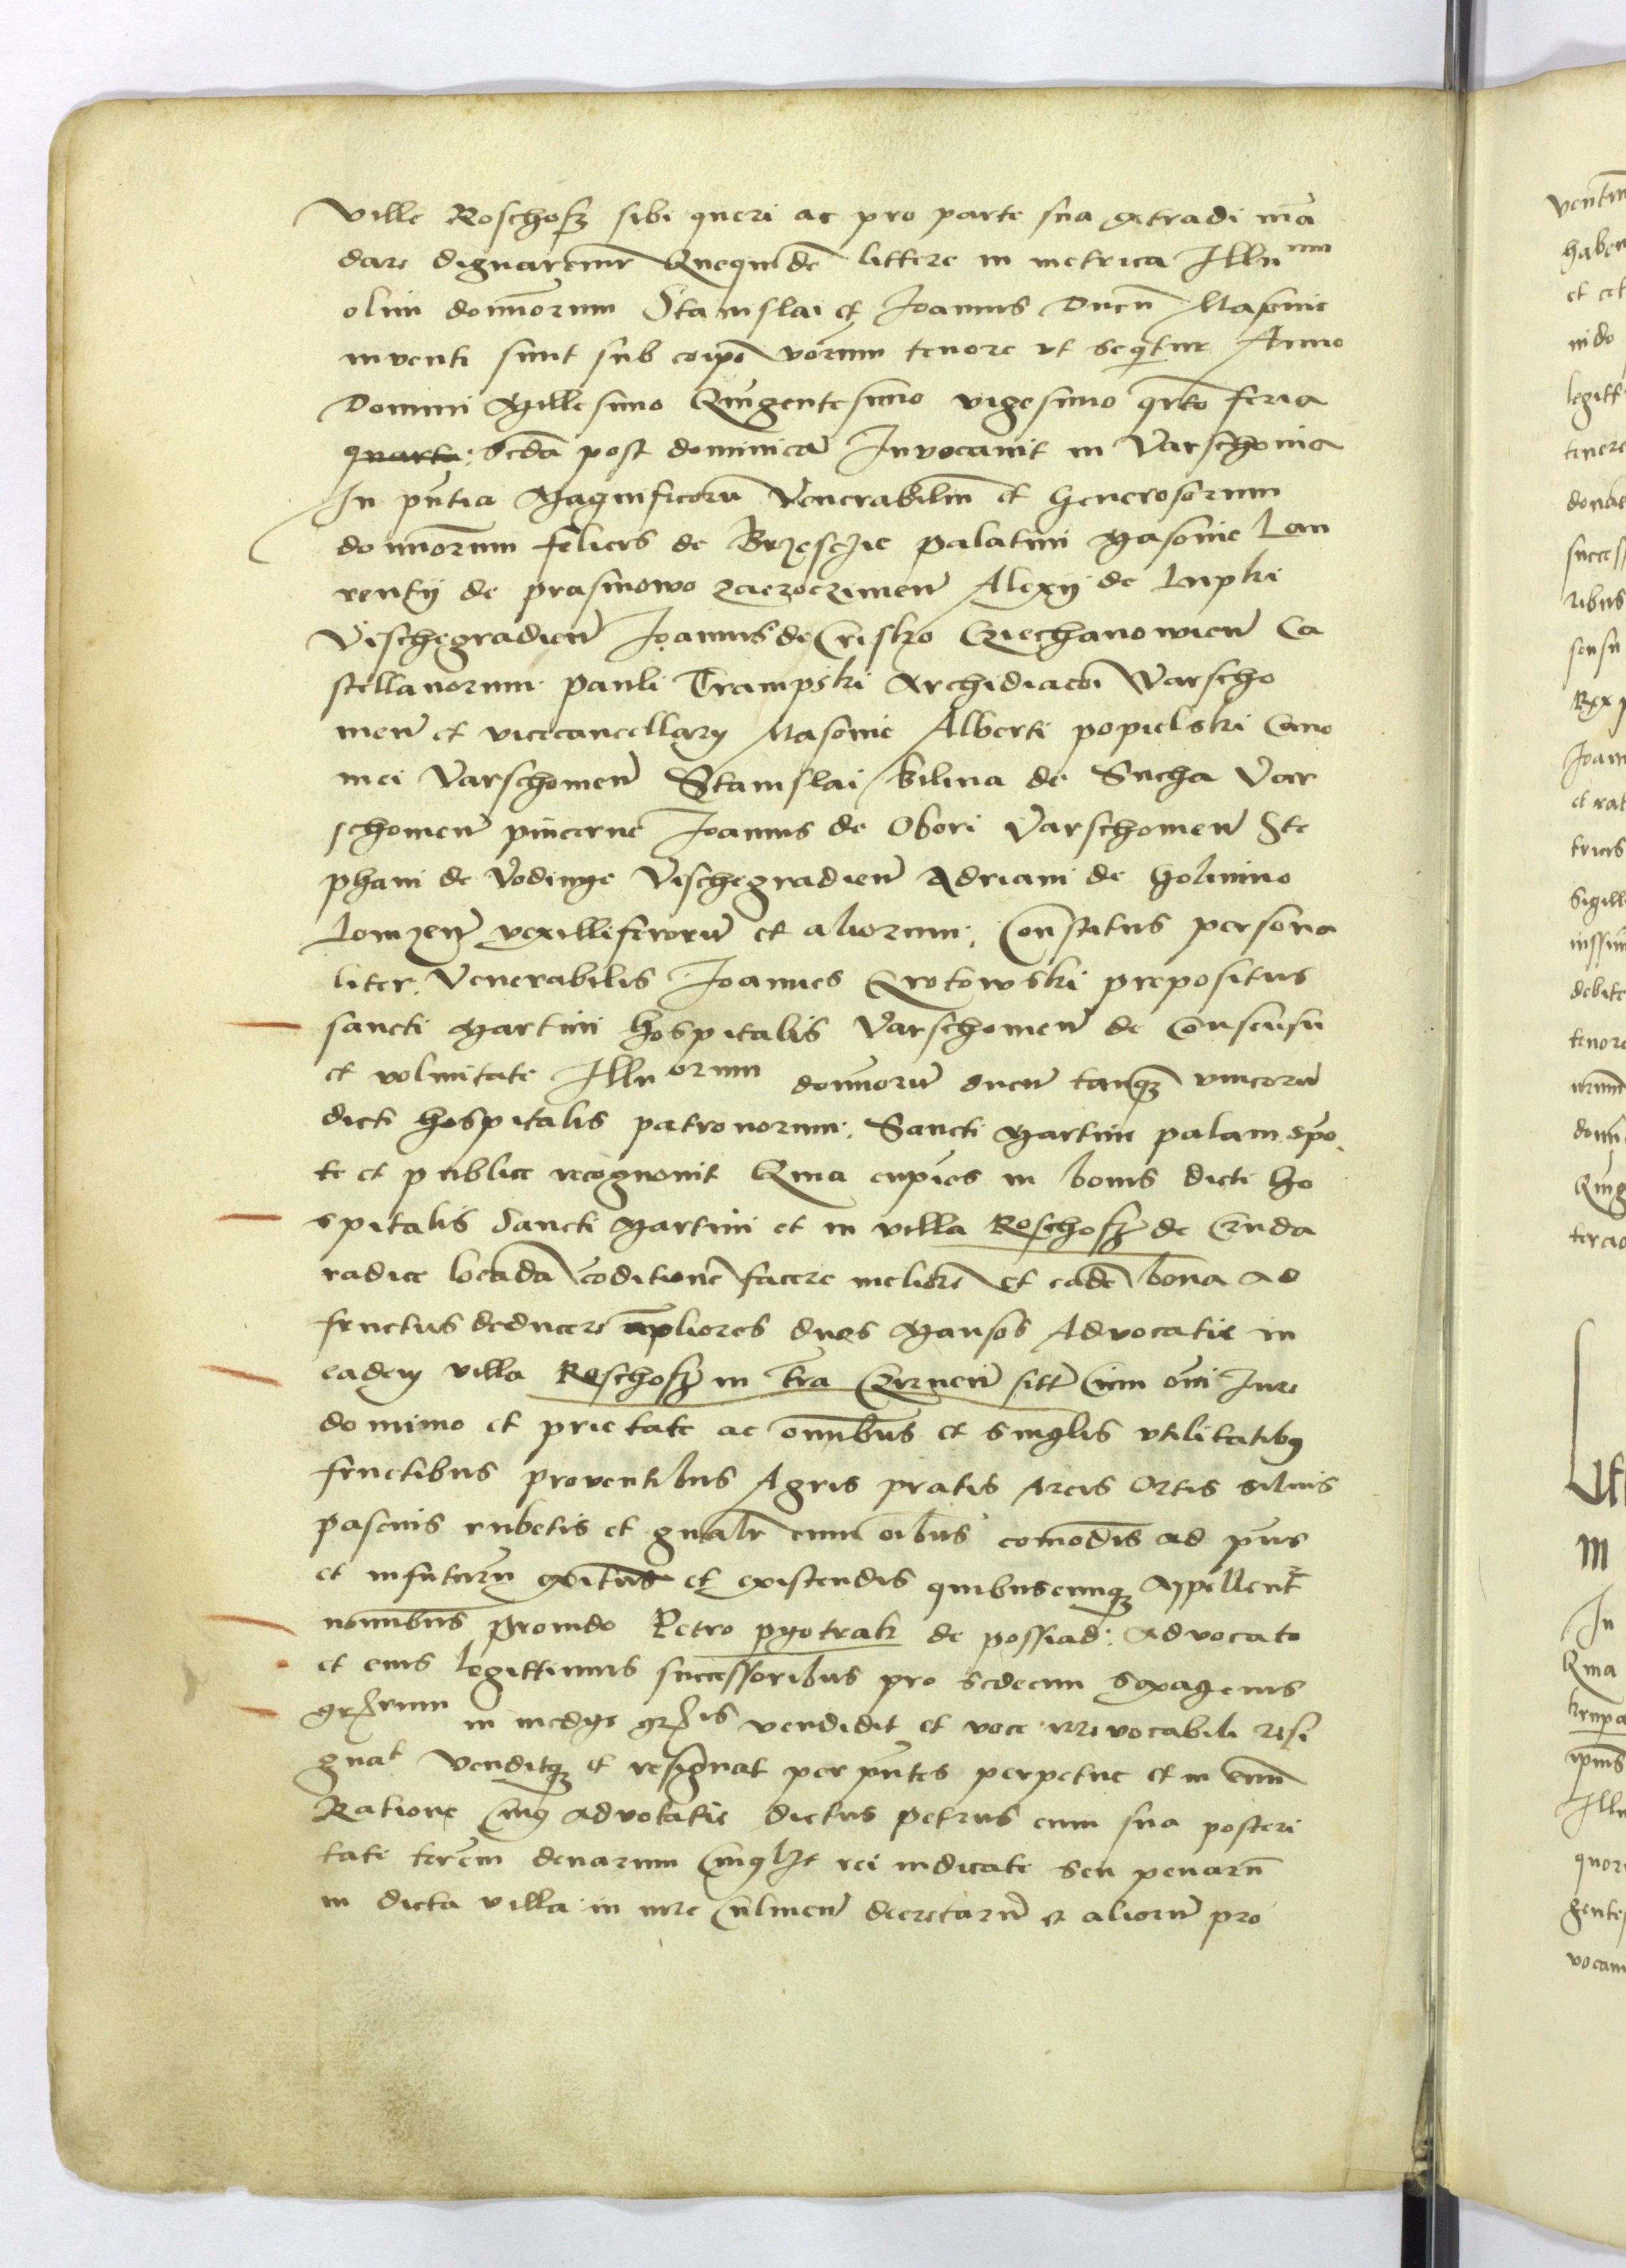 ville Roschosz sibi queri ac pro parte sua extradi mā
dare dignaremur Quequidē littere in metrica Illu mm
olim dominorum Stanislai et Joannis Ducū Masovie
inventi sunt sub corpō verum tenore ut sequitur Anno
Domini Millesimo Quingentesimo vigesimo qrto feria
quarta: Scdā post dominicā Invocavit in Varschovia
In pn̄tia Magnificorū Venerabiliū et Generosorum
dominorum Felicis de Brzesczie palatini Masovie Lau
rentii de prasmowo zaczoczimen̄ Alexii de Lupki
Vischegradien̄ Joannis de Crisko Cziechanowien̄ Ca
stellanorum pauli Trampski Archidiaconi Warscho
uien̄ et vicecancellarii Masovie Alberti popielski Cano
nici Varschouien̄ Stanislai bilina de Sucha Var
schouien̄ pincerne Joannis de Obori Varschouien̄ Ste
phani de Vodinye Vischegradien̄ Adriani de Golimino
Lomzen̄ vexilliferorū et aliorum: Constitutus persona
liter Venerabilis Joannes Crotowski prepositus
sancti Martini Hospitalis Varschouien̄ de Consensu
et voluntate Illu orum dominorū ducū tanq̄ȝ unicorū
dicti Hospitalis patronorum: Sancti Martini palam spō
te et publice recognovit Quia cupiēs in bonis dicti Ho
spitalis Sancti Martini et in villa Roschosz de Cruda
radice locādā cōditionē facere meliorē et eadē bona ad
fructus deducere āpliores duos Mansos Advocatie in
eadem villa Roschosz in Tra Czirnen̄ sitt̄ Cum omni Jure
dominio et prietate ac omnibus et singlis utilitatibꝰ
fructibus proventibus Agris pratis Areis Ortis silvis
pascuis rubetis et gnalr̄ cum oībus comodis ad pn̄s
et infuturū exn̄tibus et existendis quibuscunqȝ Appellent̄
nominibus Provido Petro pyotrak de possiad: Advocato
et eius legittimis successoribus pro sedecim sexagenis
grossorum in medys grossis vendidit et voce irrevocabili resi
gnat Venditqȝ et resignat per pn̄tes perpetue et in evū
Ratione Cuiꝰ advocatie dictus petrus cum sua posteri
tate terciū denarum Cuiꝰlȝt rei iudicate seu penarū
in dicta villa in iure Culmen̄ decretarū et aliorū pro